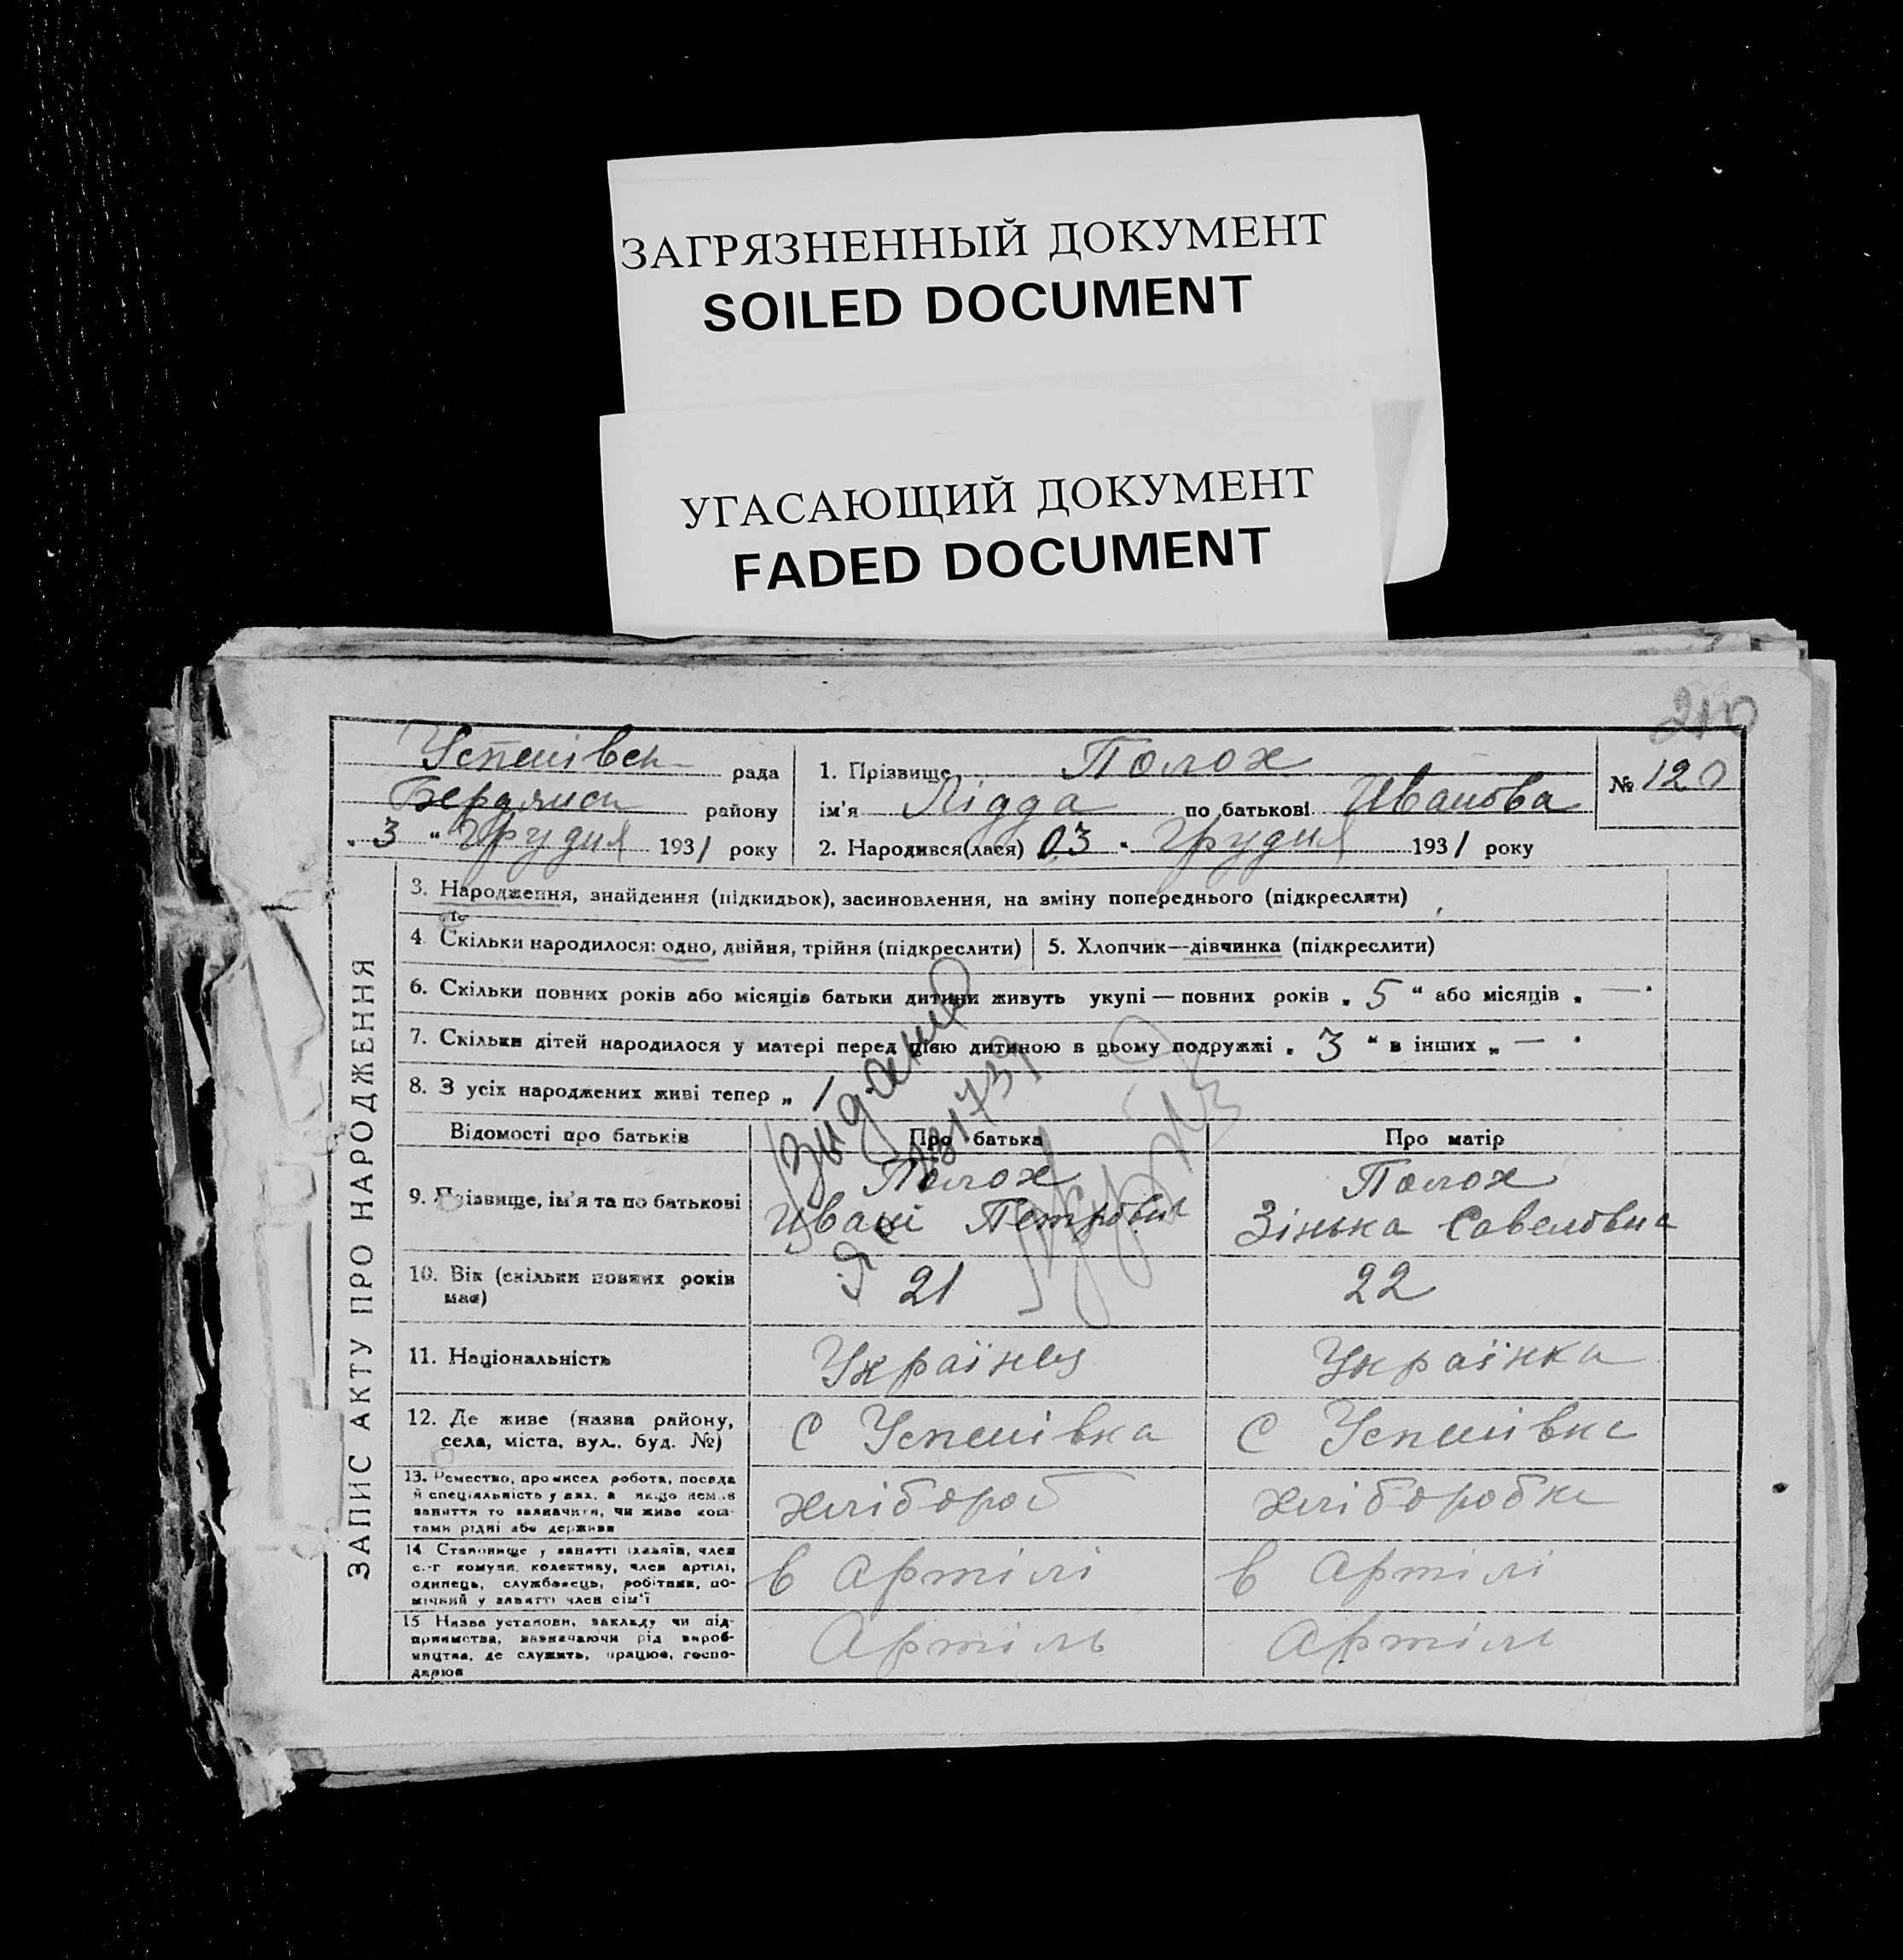 ЗАГРЯЗНЕННЫЙ ДОКУМЕНТ
SOILED DOCUMENT
УГАСАЮЩИЙ ДОКУМЕНТ
FADED DOCUMENT
210
Успенівськ рада
Бердянськ району
„3“ Грудня 1931 року
1. Прізвище Полох
ім'я Лідда по батькові Иванова
2. Народився(лася) 03 " Грудня 1931 року
№ 120
ЗАПИС АКТУ ПРО НАРОДЖЕННЯ
3. Народження, знайдення (підкидьок), засиновлення, на зміну попереднього (підкреслити)
4. Скільки народилося: одно, двійня, трійня (підкреслити)
5. Хлопчик—дівчинка (підкреслити)
6. Скільки повних років або місяців батьки дитини живуть укупі — повних років „5“ або місяців „—“
7. Скільки дітей народилося у матері перед цією дитиною в цьому подружжі „3“ в інших „—“
8. З усіх народжених живі тепер „1
Відомості про батьків Про батька Про матір
9. Прізвище, ім'я та по батькові
Полох
Ивані Петрович
Полох
Зінька Савеловна
10. Вік (скільки повних років має)
21 22
11. Національність Українец Українка
12. Де живе (назва району,
села, міста, вул., буд. №)
С Успенівка С Успенівка
13. Ремество, промисел робота, посада
й спеціяльність у них, а якщо немає
заняття то зазначити, чи живе кош-
тами рідні або держави
хлібороб хлібороbка
14. Становище у занятті хазяїн, член
с.-г комуни, колективу, член артілі,
одинець, службовець, робітник, по-
мічний у занятті член сім'ї
в Артілі в Артілі
15. Назва установи, закладу чи під-
приємства, зазначаючи рід вироб-
ництва, де служить, працює, госпо-
дарює
Артіль Артіль